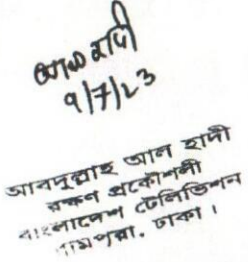 আল হাদী
৭/7/23
আবদুল্লাহ আল হাদী
রক্ষণ প্রকৌশলী
বাংলাদেশ টেলিভিশন
রামপুরা, ঢাকা।